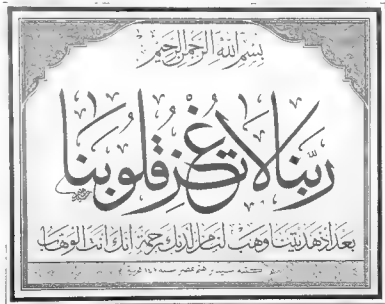 بسم الله الرحمن الرحيم
ربنا لا تزغ قلوبنا
بعد إذ هديتنا وهب لنا من لدنك رحمة إنك أنت الوهاب